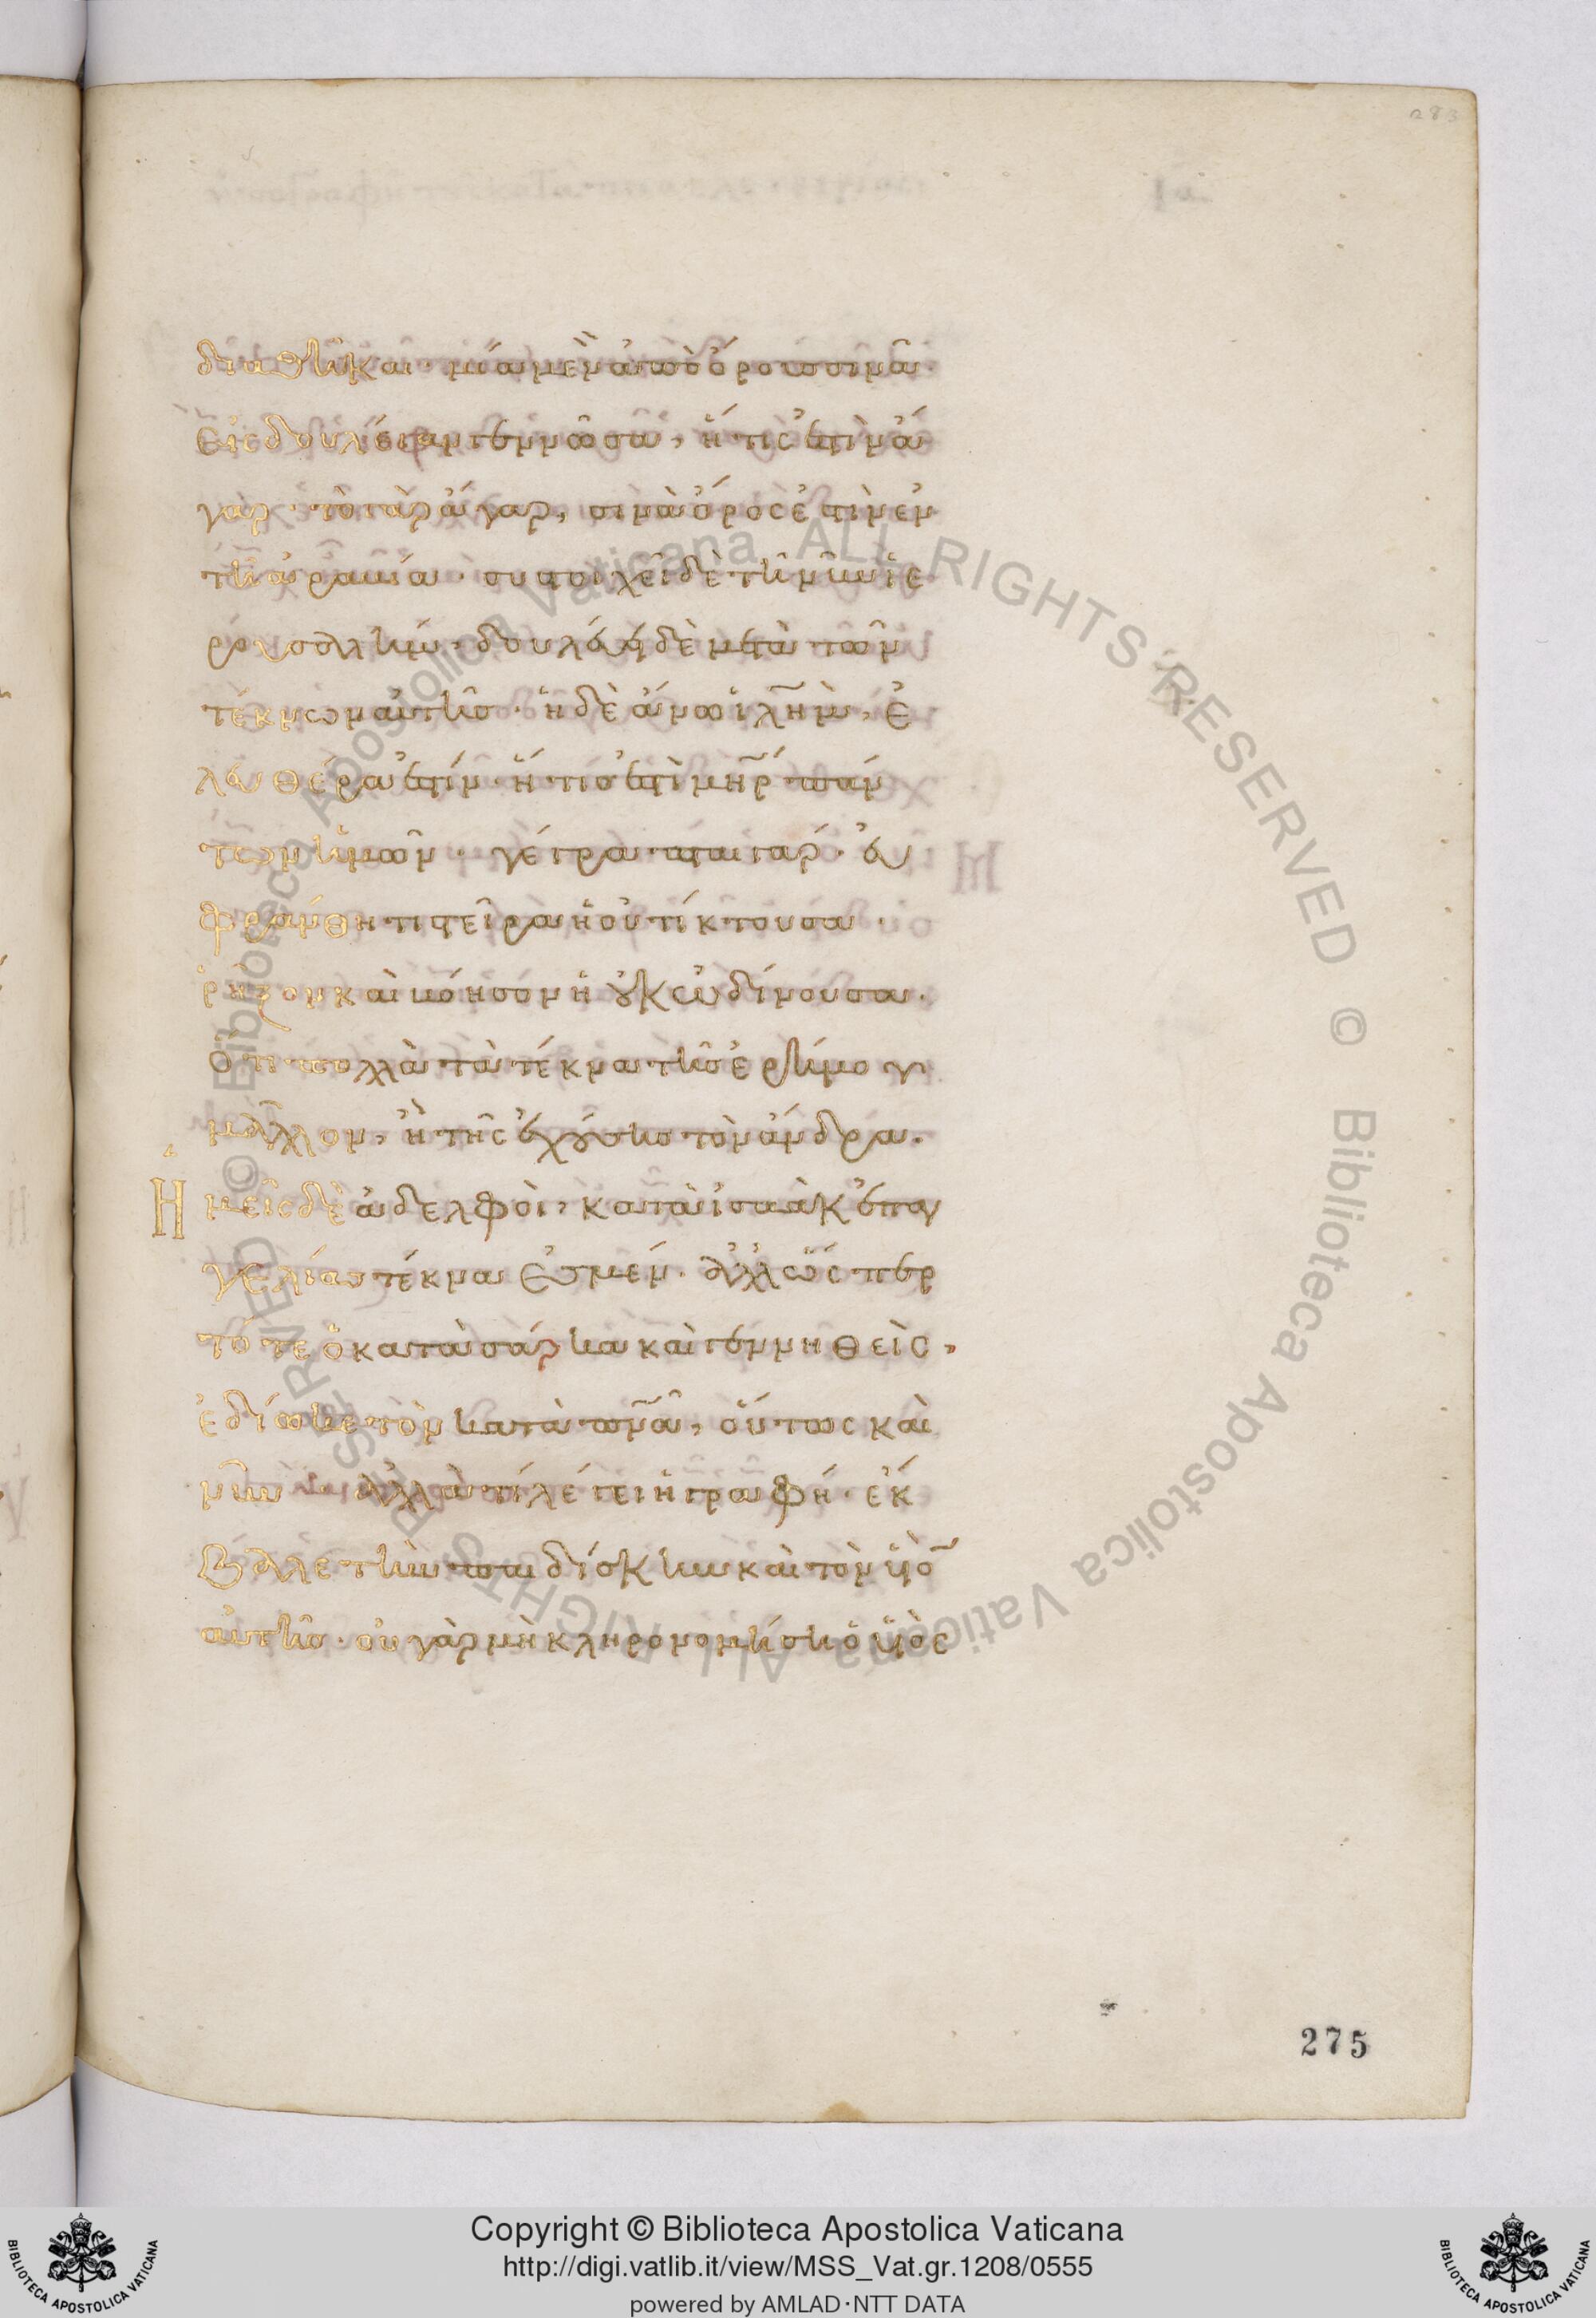 283
διαθῆκαι· μία μὲν ἀπὸ ὄρους σινᾶ·
εἰς δουλείαν γεννῶσα, ἥτις ἐστὶν ἄ
γαρ· τὸ γὰρ ἄγαρ, σινὰ ὄρος ἐστὶν ἐν
τῆ ἀραβία· συστοιχεῖ δὲ τῆ νῦν ἱε
ρουσαλήμ· δουλεύει δὲ μετὰ τῶν
τέκνων αὐτῆς· ἡ δὲ ἄνω ἱλῆμ, ἐ
λευθέρα ἐστίν· ἥτις ἐστὶ μηρ πάν
των ἡμῶν· γέγραπται γάρ· εὐ
φράνθητι στεῖρα ἡ οὐ τίκτουσα·
ῥῆξον καὶ βόησον ἡ οὐκ ὠδίνουσα·
ὅτι πολλὰ τὰ τέκνα τῆς ἐρήμου
μᾶλλον, ἢ τῆς ἐχούσης τὸν ἄνδρα·
Ἡμεῖς δὲ ἀδελφοὶ, κατὰ ἰσαὰκ ἐπαγ
γελίας τέκνα ἐσμέν· ἀλλ' ὥσπερ
τότε ὁ κατὰ σάρκα καὶ γεννηθεὶς,
ἐδίωκε τὸν κατὰ πνᾶ, οὕτως καὶ
νῦν ἀλλὰ τί λέγει ἡ γραφή· ἔκ
βαλε τὴν παιδίσκην καὶ τὸν υἱὸ
αὐτῆς· οὐ γὰρ μὴ κληρονομήση ὁ υἱὸς
275
© Biblioteca Apostolica Vaticana ALL RIGHTS RESERVED © Biblioteca Apostolica Vaticana ALL RIGHTS RESERVED
BIBLIOTECA APOSTOLICA VATICANA
Copyright © Biblioteca Apostolica Vaticana
http://digi.vatlib.it/view/MSS_Vat.gr.1208/0555
powered by AMLAD·NTT DATA
BIBLIOTECA APOSTOLICA VATICANA